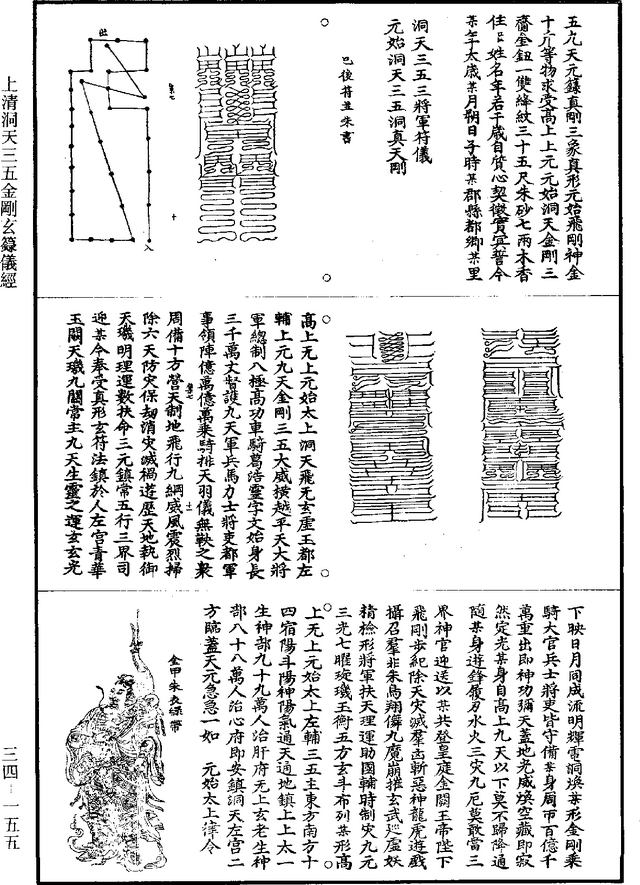 五九天元籙真剛三象真形元始飛剛神金
十斤等物求受高上上元元始洞天金剛三
齋金鈕一雙絳紋三十五尺朱砂七兩木香
住某姓名年若干歲自質心契徵實冥誓今
某年太歲某月朔日子時某郡縣都鄉某里
元始洞天三五洞真天剛
洞天三五三將軍符儀
已後符並朱書
高上无上元始太上洞天飛元玄虛王都左
輔上元九天金剛三五大威橫越平天大將
軍總制八極高功車騎葛浩靈字文始身長
三千萬丈督護九天軍兵馬力士將吏都軍
事領陣億萬億萬乘騎排天羽儀無鞅之衆
周備十方營天制地飛行九綱威風震烈掃
除六天防灾保劫消灾滅禍遊歷天地執御
天璣明理運數扶命三元鎮常五行三界司
迎某今奉受真形玄符法鎮於人左宮青華
玉闕天璣九關常主九天生靈之運玄玄光
下映日月同成流明輝電洞煥某形金剛乘
騎大官兵士將吏皆守備某身周帀百億千
萬重出即神功彌天蓋地光威煥空藏即寂
然定光某身自高上九天以下莫不歸降通
隨某身遊鋒履刃水火三灾九厄莫敢當三
界神官迎送以某共登皇庭金闕玉帝陛下
飛剛步紀除天灾滅羣凶斬惡神龍虎遊戲
攝召羣非朱鳥翔儛九魔崩摧玄武巡虛妖
精檢形將軍扶天理運助國輔時制灾九元
三光七曜琁璣玉衡五方玄斗布列某形高
上无上元始太上左輔三五主東方南方十
四宿陽斗陽神陽氣通天適地鎮上上太一
生神部九十九萬人治肝府无上玄老生神
部八十八萬人治心府即安鎮洞天左宮二
方臨蓋天元急急一如　元始太上律令
金甲朱衣綠帶
上清洞天三五金剛玄籙儀經
三四–一五五